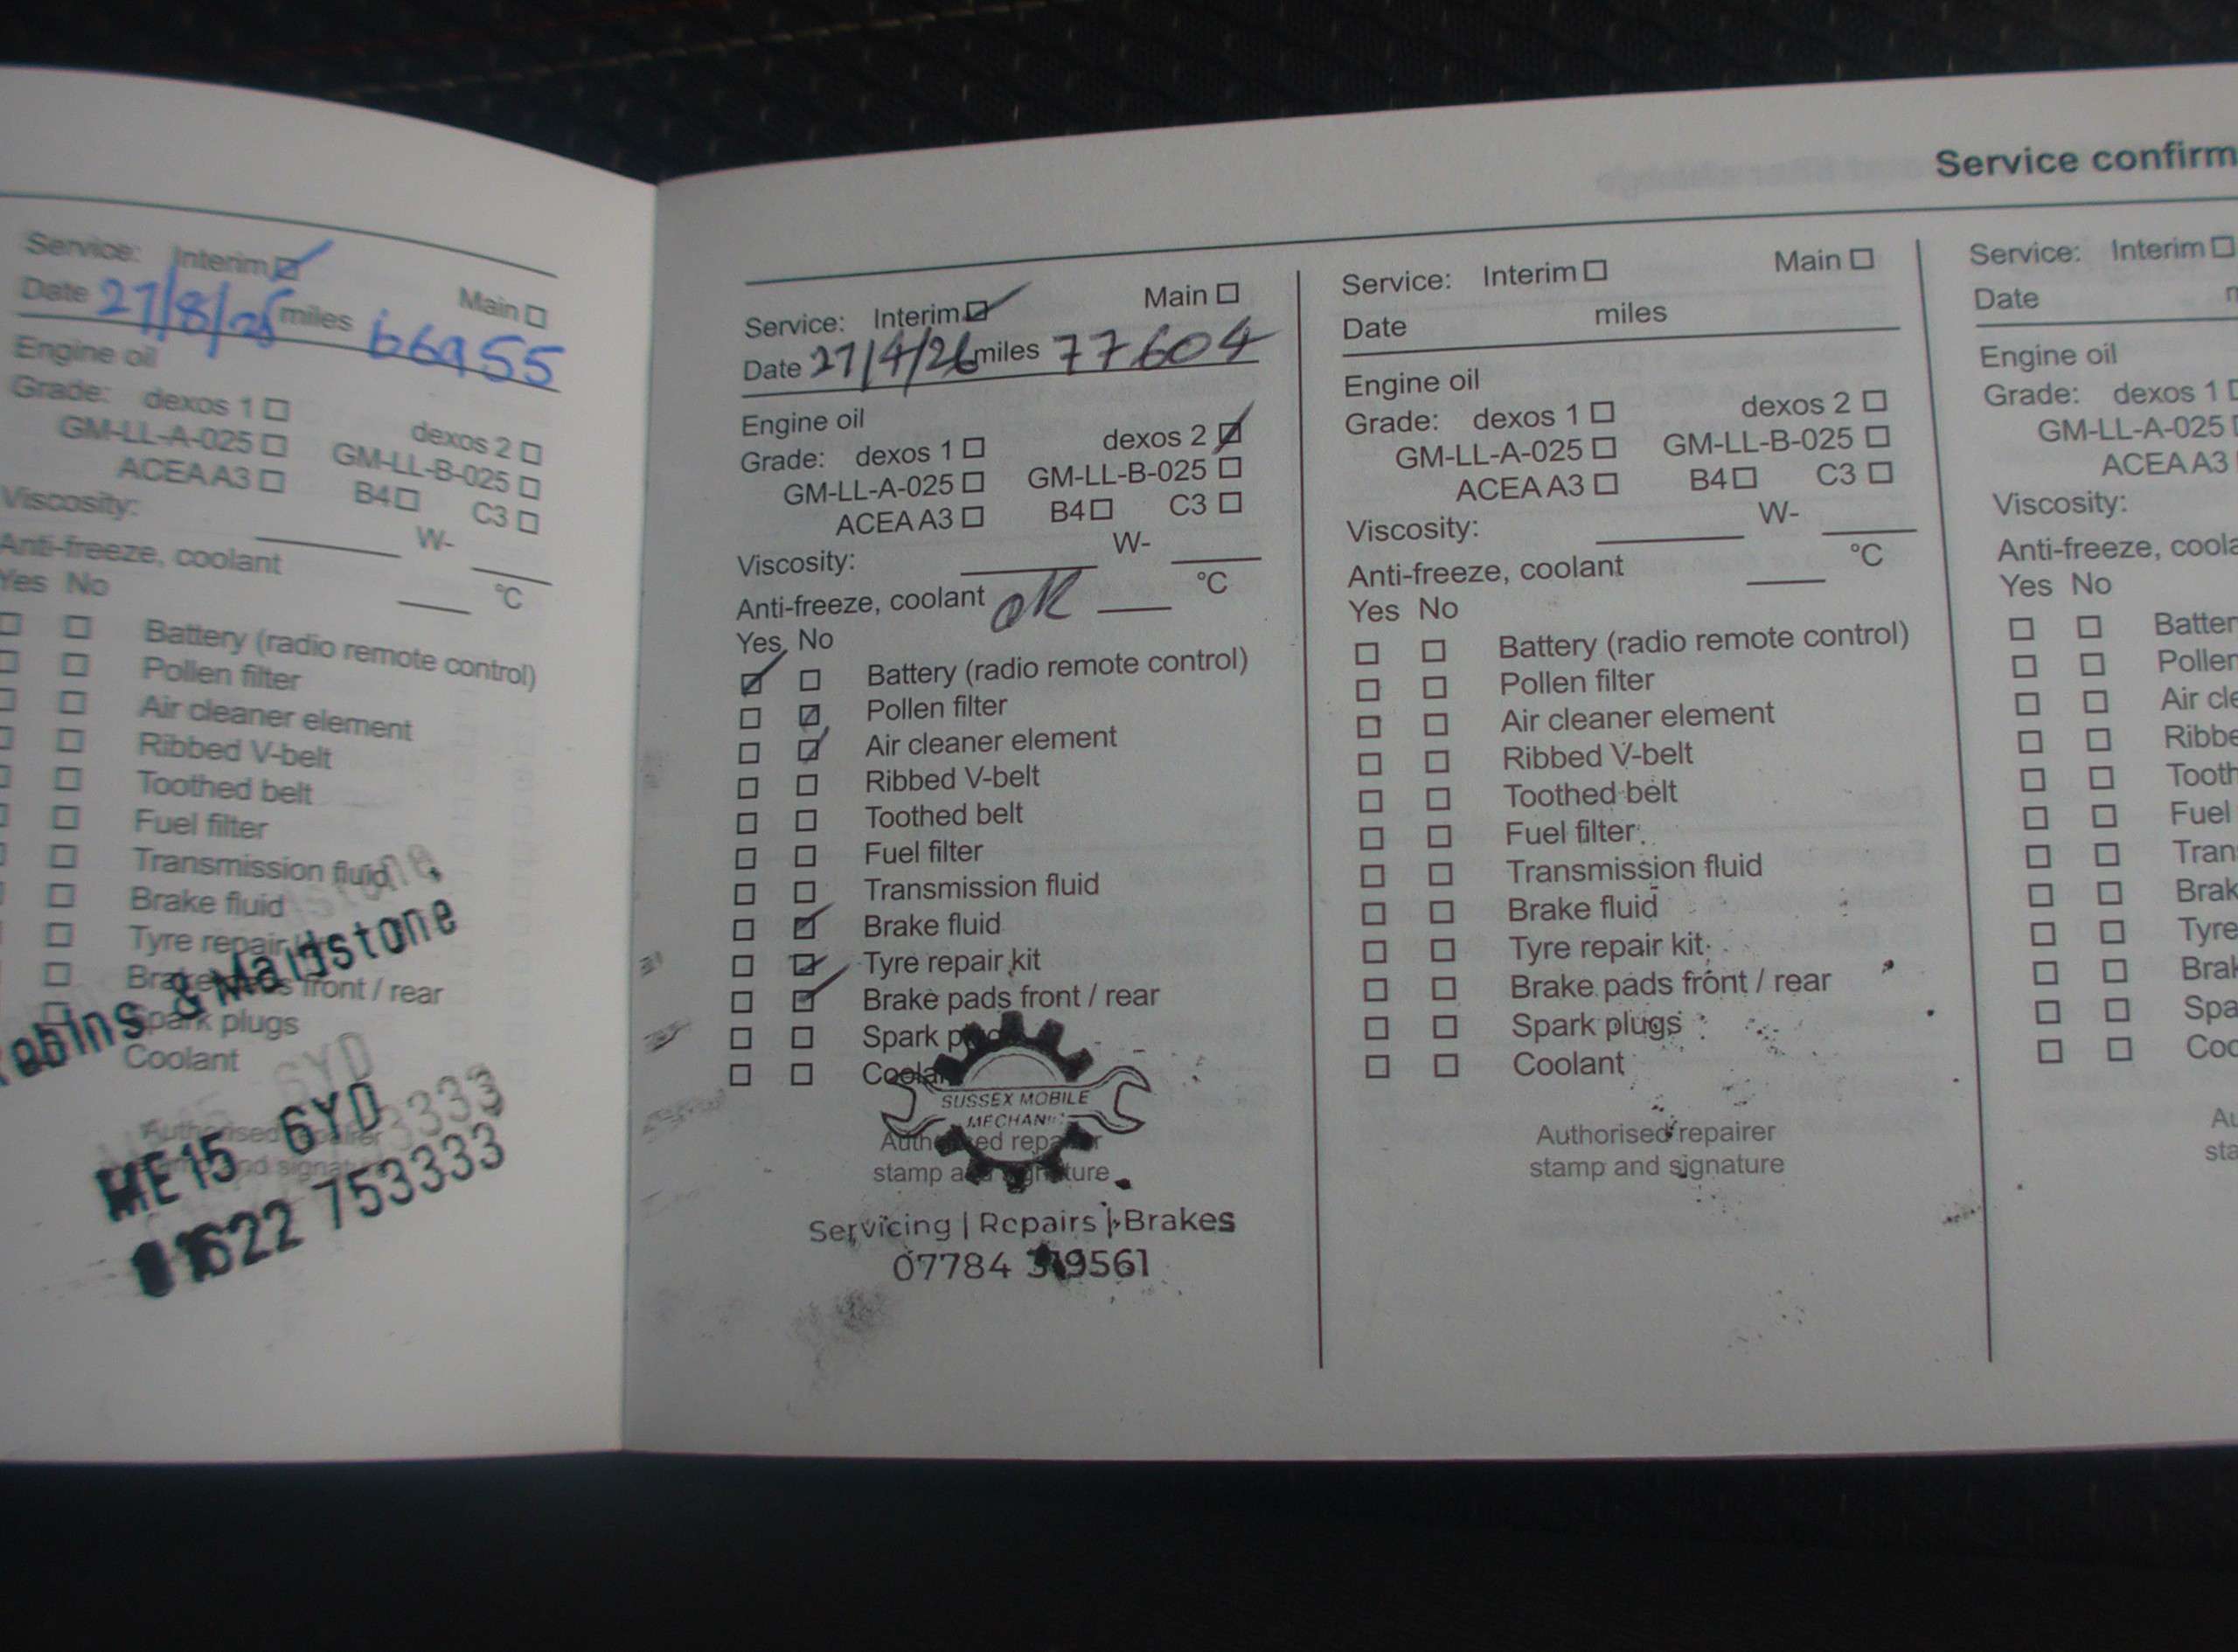 Service confirm
Service: Interim Main
Date 27/8/25 miles 66955
Engine oil
Grade: dexos 1 dexos 2
GM-LL-A-025 GM-LL-B-025
ACEA A3 B4 C3
Viscosity: W-
Anti-freeze, coolant °C
Yes No
Battery (radio remote control)
Pollen filter
Air cleaner element
Ribbed V-belt
Toothed belt
Fuel filter
Transmission fluid
Brake fluid
Tyre repair
front / rear
Spark plugs
Coolant
& Maidstone
ME15 6YD
01622 753333
Service: Interim Main
Date 27/4/26 miles 77604
Engine oil
Grade: dexos 1 dexos 2
GM-LL-A-025 GM-LL-B-025
ACEA A3 B4 C3
Viscosity: W-
Anti-freeze, coolant OK °C
Yes No
Battery (radio remote control)
Pollen filter
Air cleaner element
Ribbed V-belt
Toothed belt
Fuel filter
Transmission fluid
Brake fluid
Tyre repair kit
Brake pads front / rear
Spark
SUSSEX MOBILE
MECHANIC
stamp
Servicing | Repairs | Brakes
07784 319561
Service: Interim Main
Date miles
Engine oil
Grade: dexos 1 dexos 2
GM-LL-A-025 GM-LL-B-025
ACEA A3 B4 C3
Viscosity: W-
Anti-freeze, coolant °C
Yes No
Battery (radio remote control)
Pollen filter
Air cleaner element
Ribbed V-belt
Toothed belt
Fuel filter
Transmission fluid
Brake fluid
Tyre repair kit
Brake pads front / rear
Spark plugs
Coolant
Authorised repairer
stamp and signature
Service: Interim
Date
Engine oil
Grade: dexos 1
GM-LL-A-025
ACEA A3
Viscosity:
Anti-freeze, coola
Yes No
Batter
Pollen
Air cle
Ribbe
Tooth
Fuel
Tran
Brak
Tyre
Brak
Spa
Coo
Au
sta